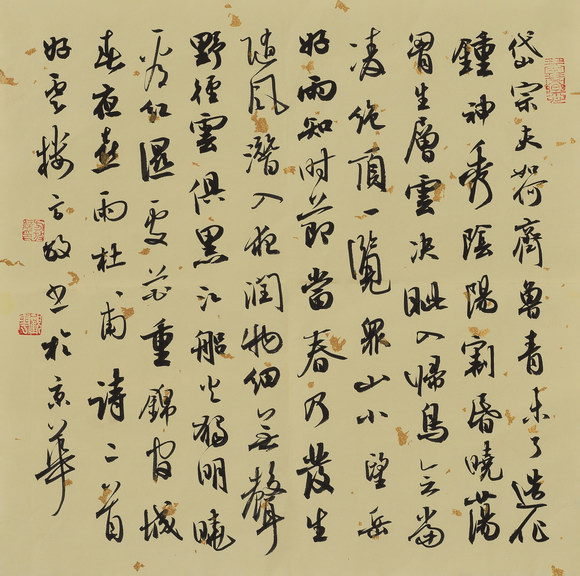 岱宗夫如何齊魯青未了造化
鍾神秀陰陽割昏曉蕩
胷生層雲决眦入歸鳥会當
凌絕頂一覽眾山小望岳
好雨知时節當春乃發生
随風潛入夜潤物細無聲
野徑雲俱黑江船火獨明曉
看紅濕處花重錦官城
春夜喜雨杜甫詩二首
好雲樓书於京華